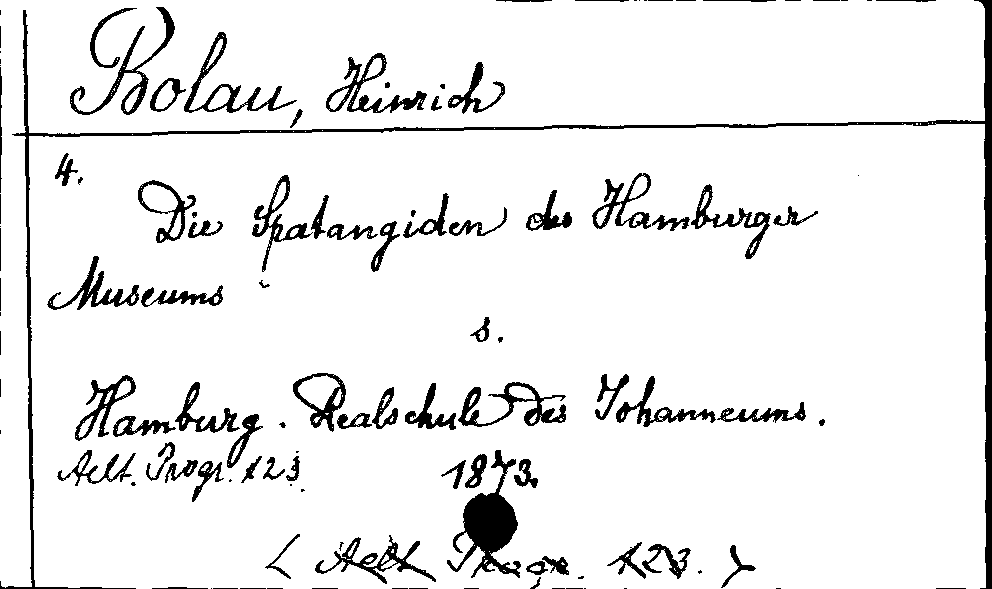 Bolau, Heinrich
4.
Die Spatangiden des Hamburger
Museums
s.
Hamburg. Realschule des Johanneums.
Aelt. Progr. 123. 1873.
( Aelt Progr. 123. )